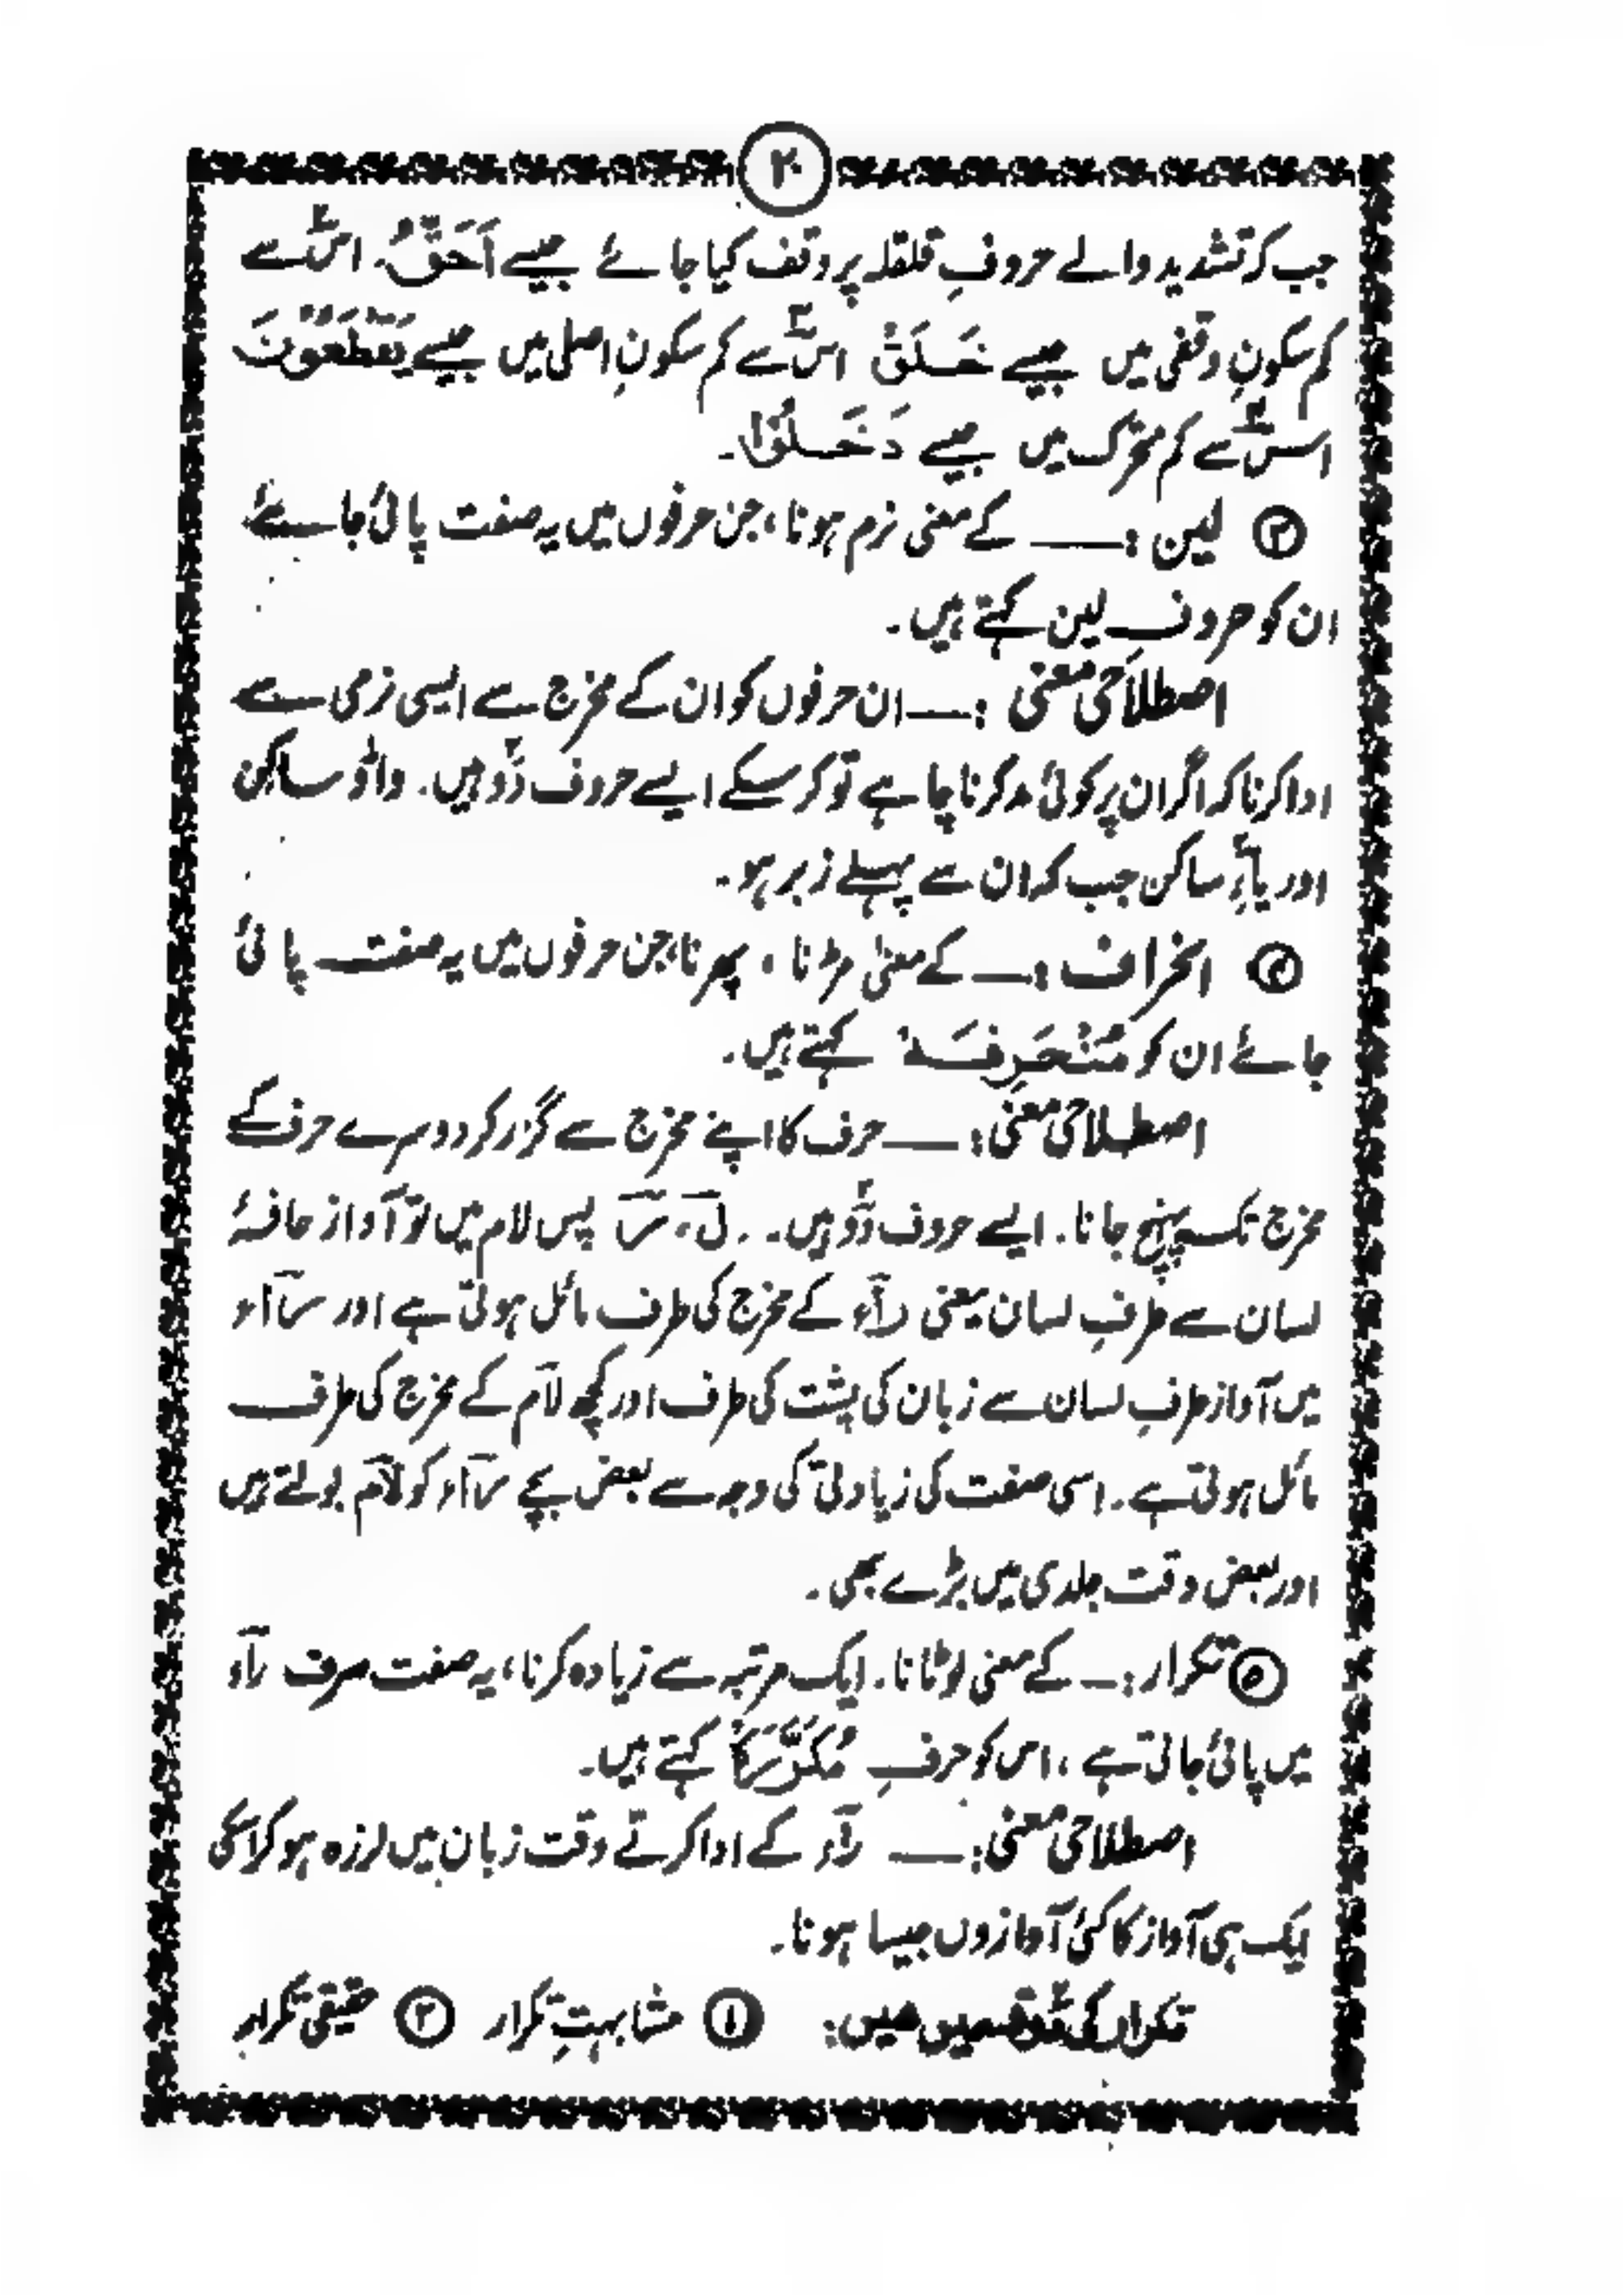 ۲۰
جب کہ تشدید والے حروفِ قلقلہ پر وقف کیا جائے جیسے اَحَقُّ، اس سے
کم سکونِ وقفی میں جیسے خَلَقْ اس سے کم سکونِ اصلی میں جیسے یَقْطَعُوْنَ
اس سے کم متحرک میں جیسے دَخَلُوْا۔
③ لین :۔ کے معنی نرم ہونا، جن حرفوں میں یہ صفت پائی جائے
ان کو حروفِ لین کہتے ہیں۔
اصطلاحی معنی :۔ ان حرفوں کو ان کے مخرج سے ایسی نرمی سے
ادا کرنا کہ اگر ان پر کوئی مد کرنا چاہے تو کر سکے ایسے حروف دو ہیں۔ واؤ ساکن
اور یاءِ ساکن جب کہ ان سے پہلے زبر ہو۔
④ انحراف :۔ کے معنیٰ مڑنا ، پھرنا، جن حرفوں میں یہ صفت پائی
جائے ان کو مُنْحَرِفَہْ کہتے ہیں۔
اصطلاحی معنی :۔ حرف کا اپنے مخرج سے گزر کر دوسرے حرف کے
مخرج تک پہنچ جانا۔ ایسے حروف دو ہیں۔ ل، ر پس لام میں تو آواز حافۂ
لسان سے طرفِ لسان یعنی رآء کے مخرج کی طرف مائل ہوتی ہے اور رآء
میں آواز طرفِ لسان سے زبان کی پشت کی طرف اور کچھ لآم کے مخرج کی طرف
مائل ہوتی ہے۔ اسی صفت کی زیادتی کی وجہ سے بعض بچے رآء کو لآم بولتے ہیں
اور بعض وقت جلدی میں بڑے بھی۔
⑤ تکرار :۔ کے معنی لوٹانا۔ ایک مرتبہ سے زیادہ کرنا، یہ صفت صرف رآء
میں پائی جاتی ہے ، اس کو حرفِ مُکَرَّرَہْ کہتے ہیں۔
اصطلاحی معنی :۔ رآء کے ادا کرتے وقت زبان میں لرزہ ہو کر اسکی
ایک ہی آواز کا کئی آوازوں جیسا ہونا۔
تکرار کی دو قسمیں ہیں: ① مشابہتِ تکرار ② حقیقی تکرار